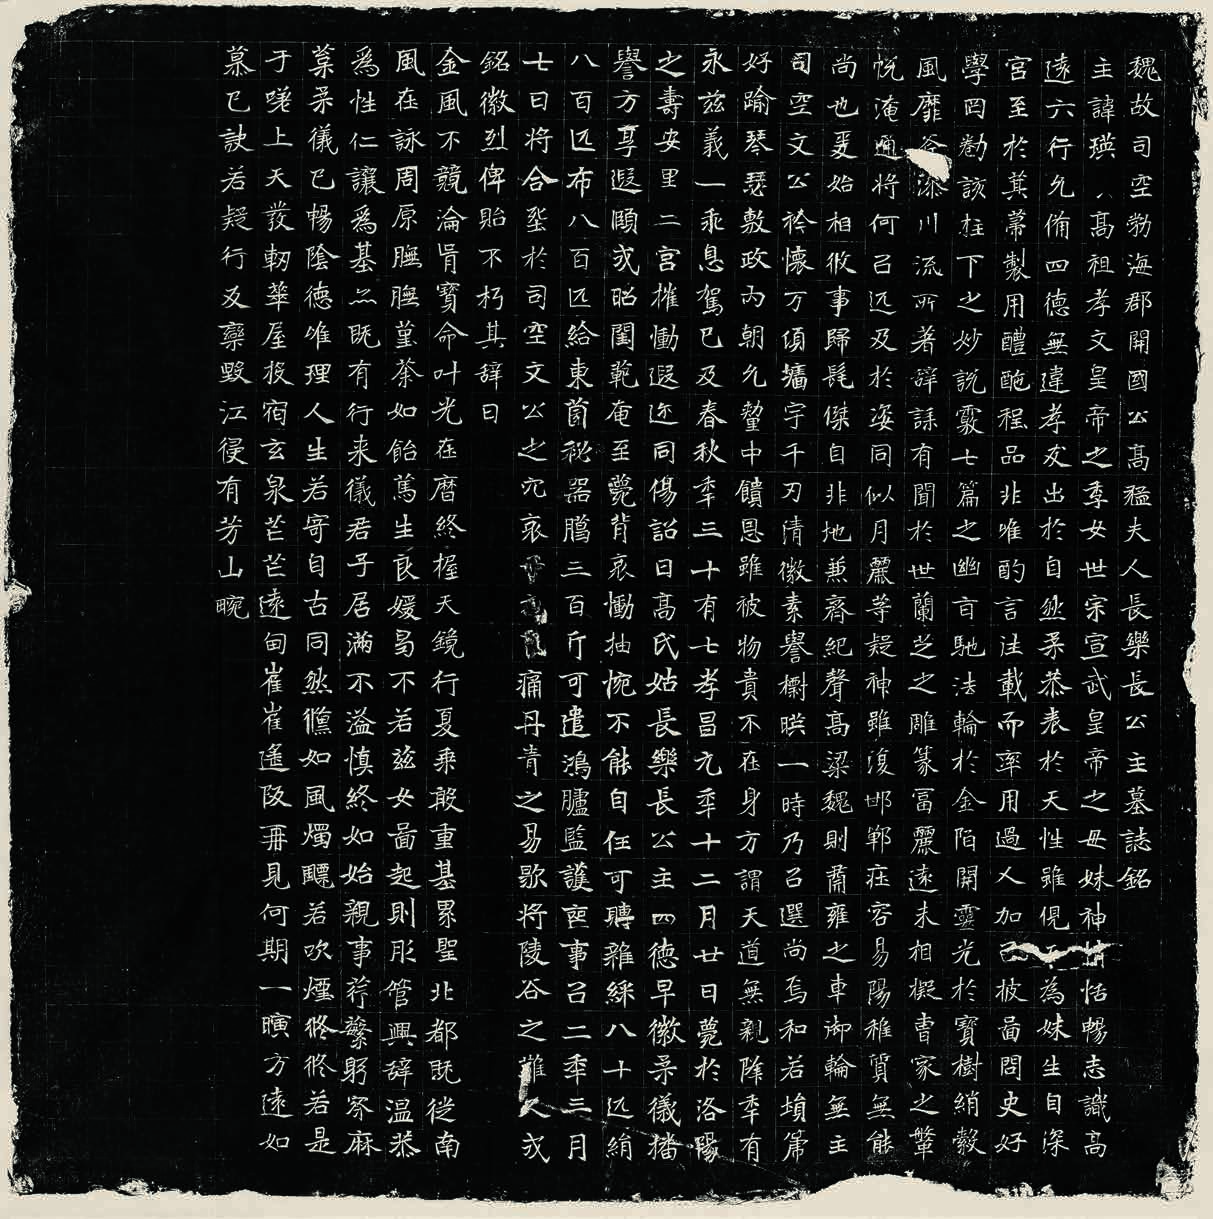 魏故司空勃海郡開國公高猛夫人長樂長公主墓誌銘
主諱瑛高祖孝文皇帝之季女世宗宣武皇帝之母妹神情恬暢志識高
遠六行允備四德無違孝友出於自然柔恭表於天性雖俔為妹生自深
宮至於箕帚製用醴酏程品非唯酌言往載而率用過人加已披圖問史好
學罔勌該柱下之妙說覈七篇之幽旨馳法輪於金陌開靈光於寶樹綃縠
風靡川流所著辭誄有聞於世蘭芝之雕篆富麗遠未相擬曹家之
悅淹通將何已远及於姿同似月麗等疑神雖復邯鄲莊容易陽稚質無能
尚也爰始相攸事歸髦傑自非地兼齊紀聲高梁魏則肅雍之車御輪無主
司空文公衿懷万頃牆宇千刃清徽素譽郁映一時乃已選尚焉和若塤篪
好踰琴瑟敷政內朝允釐中饋恩雖被物貴不在身方謂天道無親降年有
永茲義一乖息駕已及春秋年三十有七孝昌元年十二月廿日薨於洛陽
之壽安里二宮摧慟遐迩同傷詔曰高氏姑長樂長公主四德早徽柔儀播
譽方享遐頤式昭閨範奄至薨背哀慟抽惋不能自任可賻雜綵八十匹絹
八百匹布八百匹給東園秘器腊三百斤可遣鴻臚監護喪事已二年三月
七日將合葬於司空文公之穴哀痛丹青之易歇將陵谷之難久式
銘徽烈俾貽不朽其辭曰
金風不競淪胥寶命叶光在曆終握天鏡行夏乘殷重基累聖北都既從南
風在詠周原膴膴堇荼如飴篤生良媛曷不若茲女圖起則彤管興辭温恭
為性仁讓為基亦既有行来儀君子居滿不溢慎終如始親事荇蘩躬察麻
葈柔儀已暢陰德唯理人生若寄自古同然儻如風燭飄若吹煙倏倏若是
于嗟上天發軔華屋投宿玄泉芒芒遠甸崔崔遙阪再見何期一曠方遠如
慕已訣若疑行反欒毀江復有芳山畹